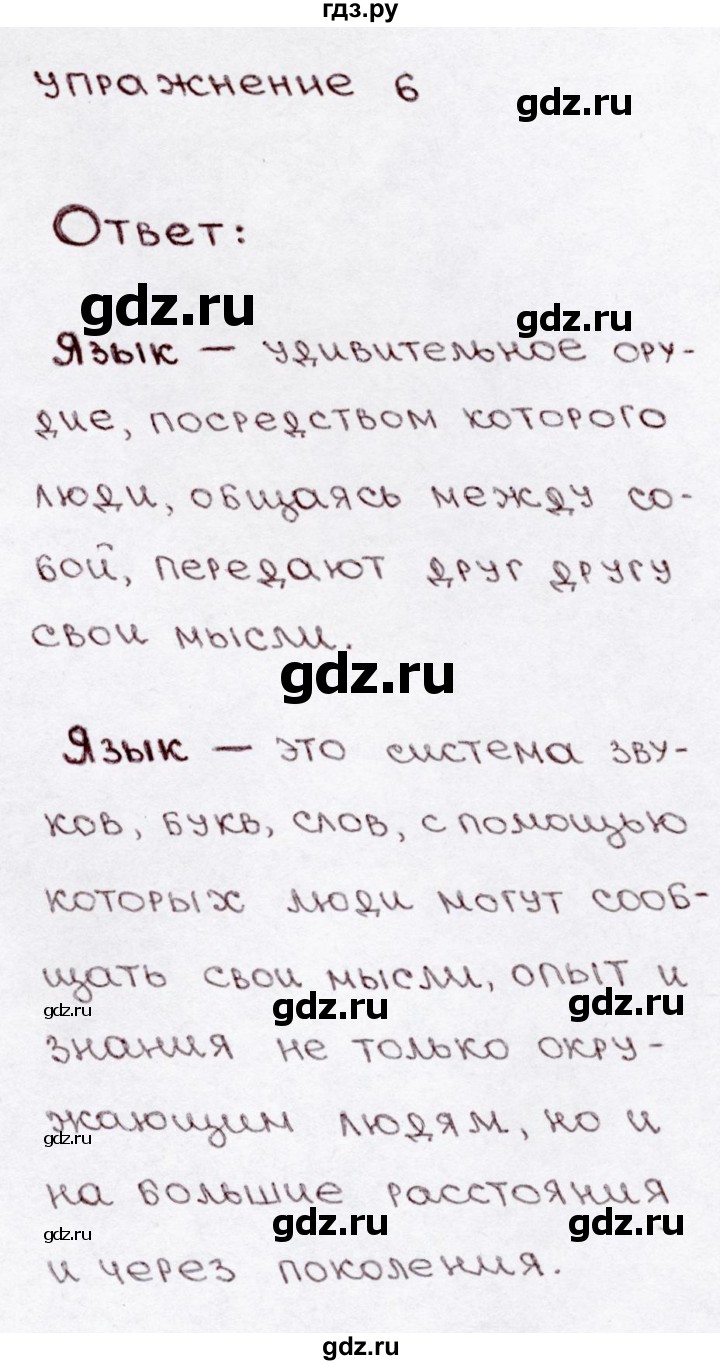 гдз.ру
упражнение 6
gdz.ru
Ответ:
gdz.ru
gdz.ru
Язык — удивительное ору-
дие, посредством которого
люди, общаясь между со-
бой, передают друг другу
свои мысли.
gdz.ru
Язык — это система зву-
ков, букв, слов, с помощью
которых люди могут сооб-
щать свои мысли, опыт и
gdz.ru gdz.ru gdz.ru
знания не только окру-
жающим людям, но и
gdz.ru
на большие расстояния
gdz.ru gdz.ru gdz.ru
и через поколения.
gdz.ru